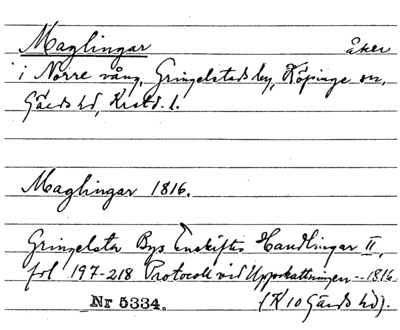 Maglingar åker
i Norre vång, Gringelstads by, Köpinge sn,
Gärds hd, Krstd. l.
Maglingar 1816.
Gringelsta Bys Enskiftes Handlingar II,
fol 197-218 Protocoll vid Uppskattningen -- 1816
Nr 5334. (K 10 Gärds hd).